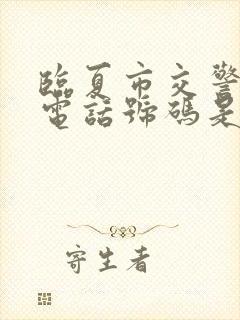 臨夏市交警
電話號碼是
寄生者